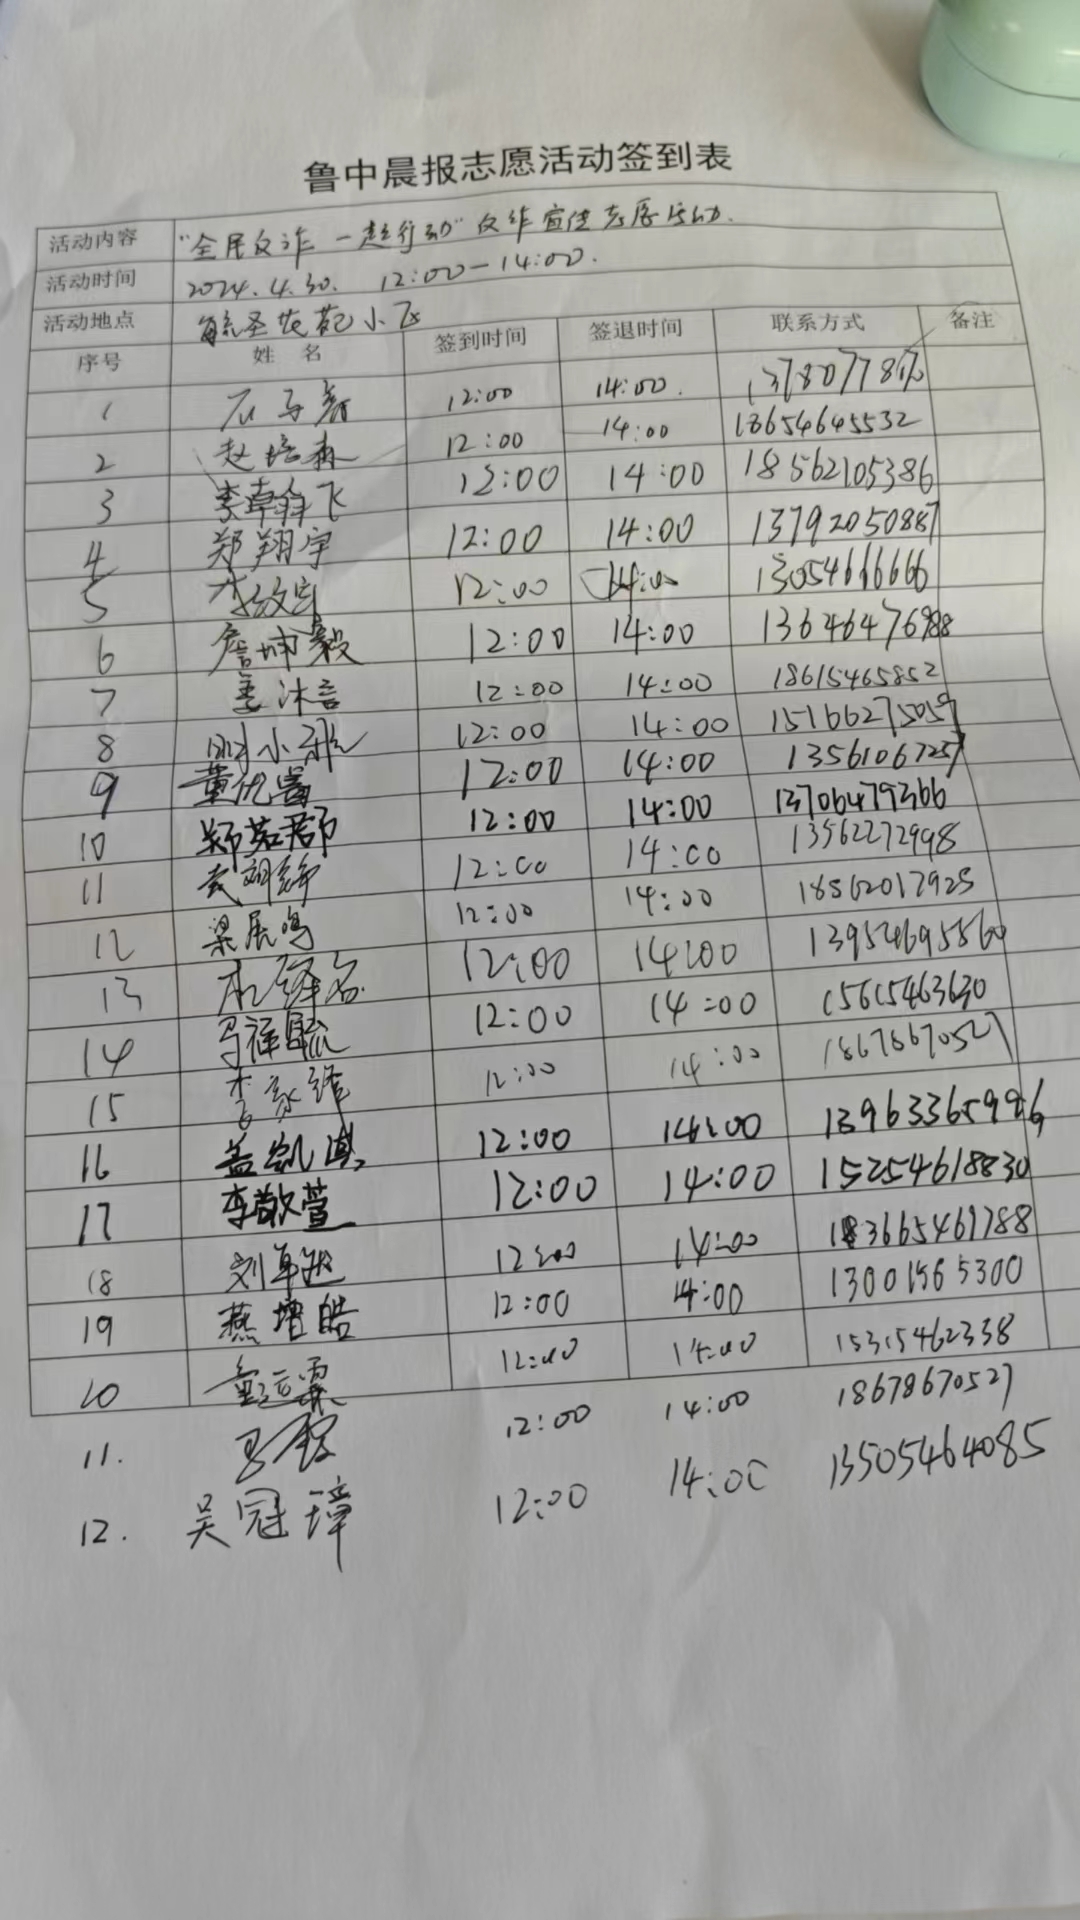 鲁中晨报志愿活动签到表
活动内容 "全民反诈 一起行动"反诈宣传志愿活动.
活动时间 2024.4.30. 12:00-14:00.
活动地点 小区
序号 姓 名 签到时间 签退时间 联系方式 备注
1 12:00 14:00.
2 赵培森 12:00 14:00 18654645532
3 李翰飞 12:00 14:00 18562105386
4 郑翔宇 12:00 14:00 13792050887
5 12:00 14:00 13054666666
6 詹坤毅 12:00 14:00 13646476988
7 姜沐言 12:00 14:00 18615465852
8 小 12:00 14:00 15166275059
9 董优 12:00 14:00 13561067257
10 郑茗郡 12:00 14:00 13706479366
11 12:00 14:00 13562272998
12 梁展鸣 12:00 14:00 18562017925
13 12:00 14:00 13954695560
14 马祥毓 12:00 14:00 15615463630
15 李家 12:00 14:00 18678670527
16 盖凯 12:00 14:00 13963365996
17 李敬萱 12:00 14:00 15254618830
18 刘卓 12:00 14:00 183665461788
19 燕增皓 12:00 14:00 13001565300
20 12:00 14:00 15315462338
11. 12:00 14:00 18678670527
12. 吴冠璋 12:00 14:00 13505464085